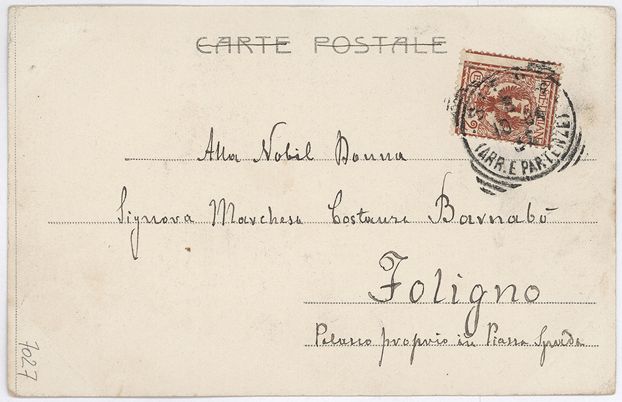 CARTE POSTALE
(ARR. E PARTENZE)
Alla Nobil Donna
Signora Marchesa Costanza Barnabò
Foligno
Palazzo proprio in Piazza Spada
7027